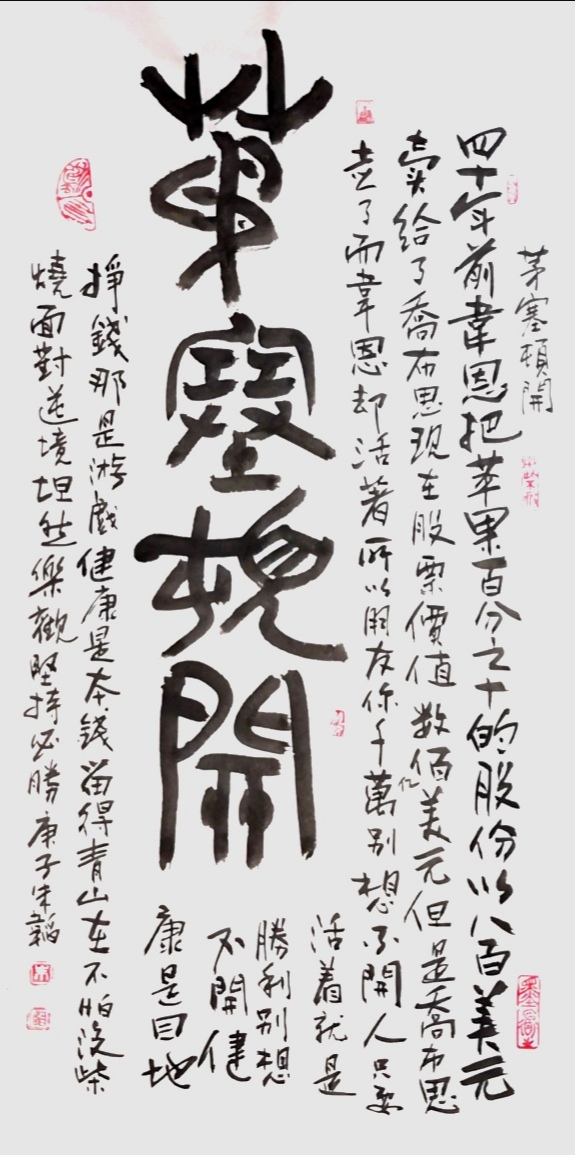 茅塞頓開
茅塞頓開
四十年前韋恩把苹果百分之十的股份以八百美元
卖給了喬布思現在股票價值数佰亿美元但是喬布思
走了而韋恩却活着所以朋友你千萬别想不開人只要
活着就是
勝利别想
不開健
康是目地
掙錢那是游戲健康是本錢留得青山在不怕没柴
燒面對逆境坦然樂觀堅持必勝庚子朱韜